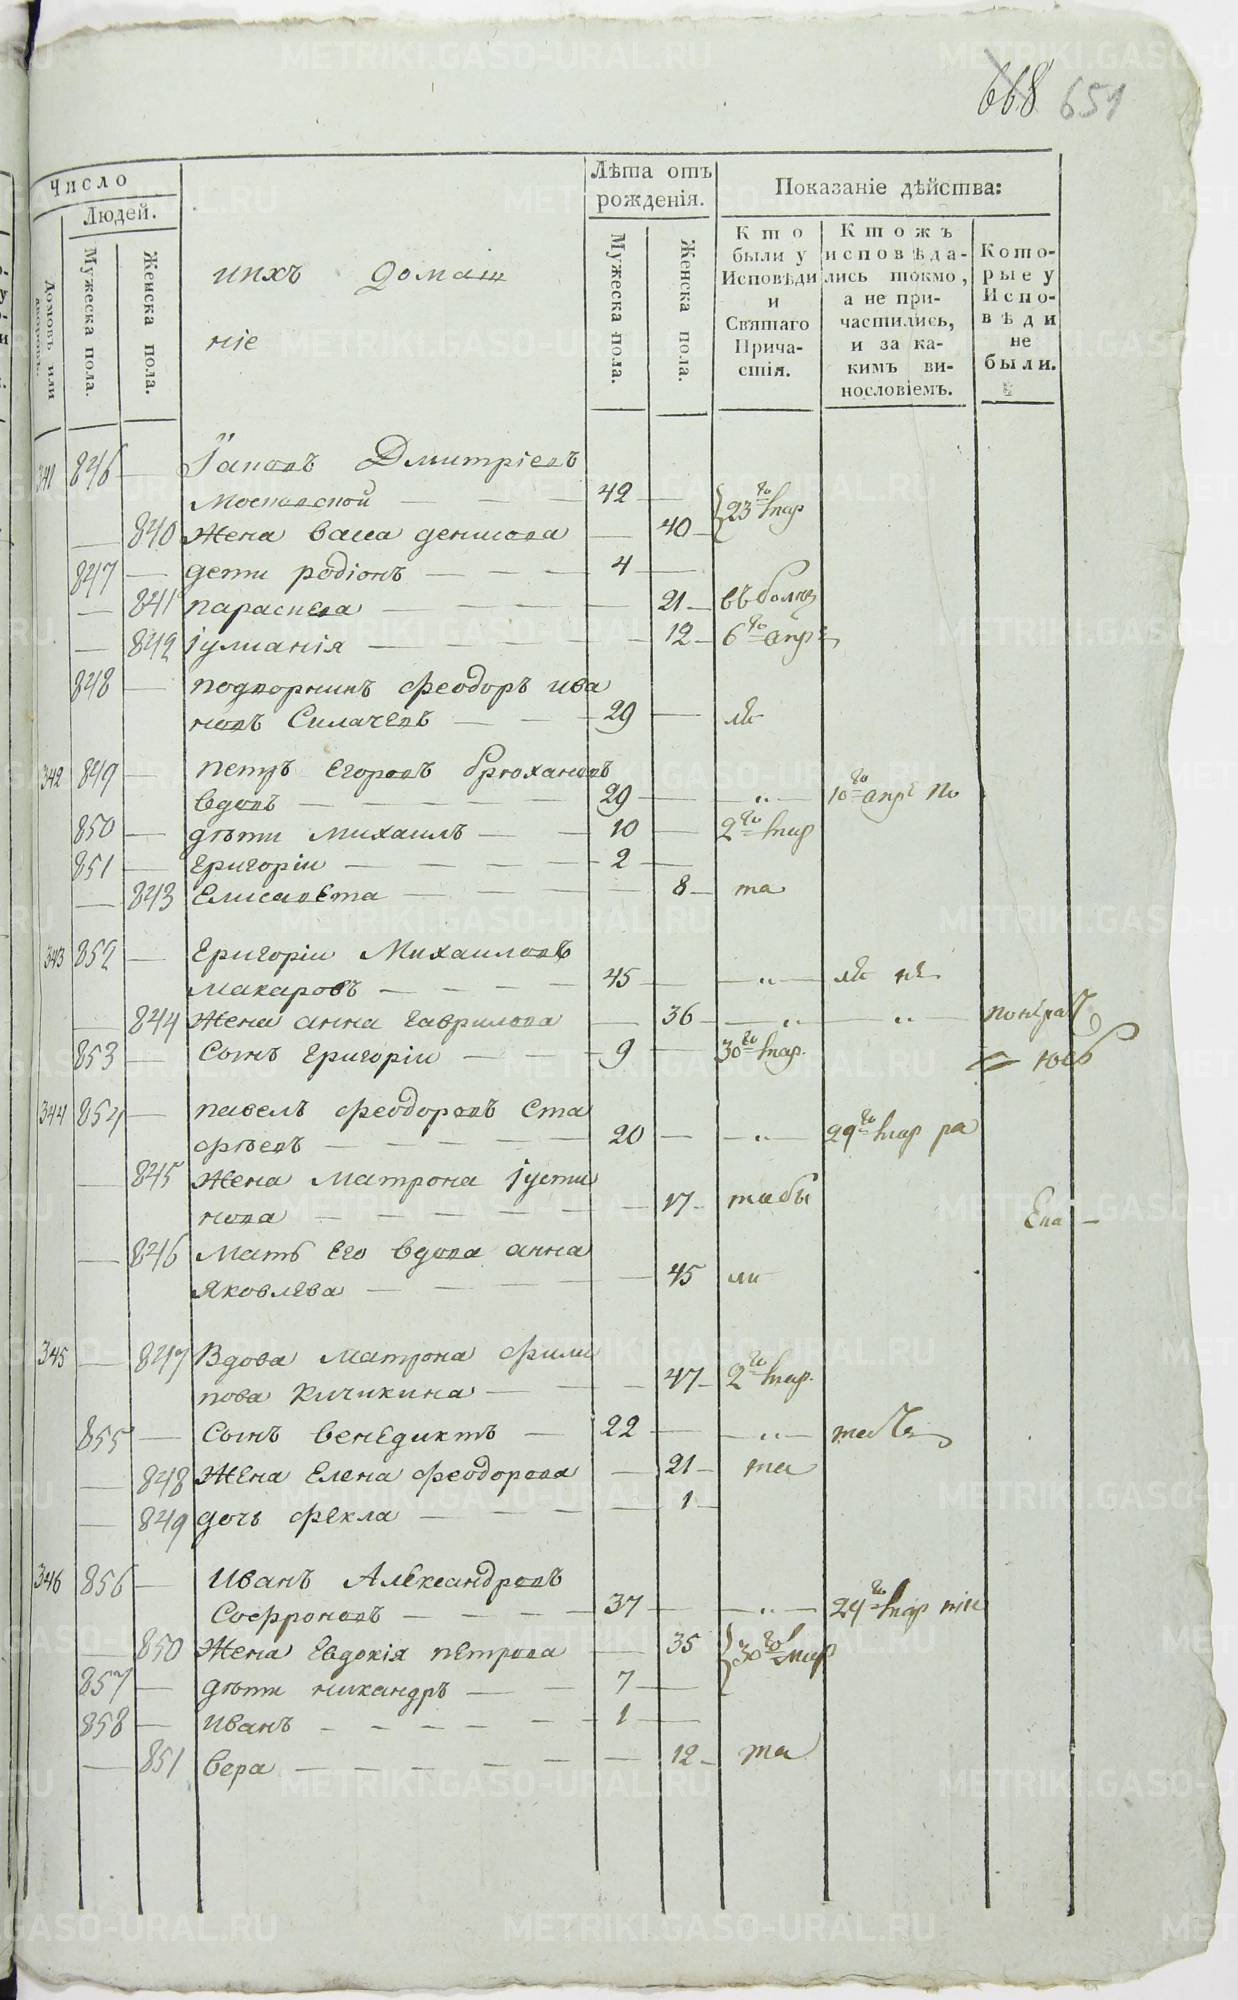 668 651
Число
Людей.
Домовъ или дворовъ.
Мужеска пола.
Женска пола.
ихъ домаш
ніе
Лѣта отъ рожденія.
Мужеска пола.
Женска пола.
Показаніе дѣйства:
Кто были у Исповѣди и Святаго Причастія.
Ктожъ исповѣдались токмо, а не причастились, и за какимъ винословіемъ.
Которые у Исповѣди не были.
341 846 — Іаковъ Дмитріевъ
Московской — 42 — 23го мар
— 840 Жена васса денисова — 40 —
847 — дети родіонъ — 4 —
— 841 параскева — 21 —
— 842 іулианія — 12 — 6го апр
848 — подворникъ феодоръ ива
новъ Силачевъ — 29 —
342 849 — петръ Егоровъ брюхановъ
вдовъ — 29 — „ — 10го апр по
850 — дѣти михаилъ — 10 — 2го мар
851 — григоріи — 2 —
— 843 Елисавета — 8 — та
343 852 — григоріи Михаиловъ
макаровъ — 45 — „ —
— 844 Жена анна гаврилова — 36 — „ — „ —
853 — Сынъ григоріи — 9 — 30го мар.
344 854 — павелъ феодоровъ Ста
фѣевъ — 20 — „ — 29го мар ра
— 845 Жена Матрона іусти
нова — 17 — табы
— 846 Мать его вдова анна
яковлева — 45 — ли
345 — 847 Вдова матрона фили
пова Кичикина — 47 — 2го мар.
855 — Сынъ венедиктъ — 22 — „ —
— 848 Жена Елена феодорова — 21 — та
— 849 дочь фекла — 1 —
346 856 — Иванъ Александровъ
Софроновъ — 37 — „ — 24го мар
— 850 Жена Евдокія петрова — 35 30го мар
857 — дѣти никандръ — 7 —
858 — иванъ — 1 —
— 851 вера — 12 — та
METRIKI.GASO-URAL.RU